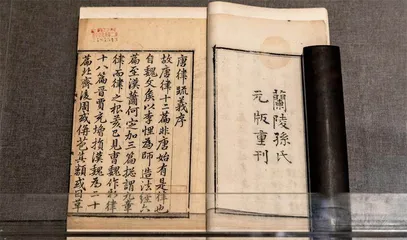 蘭陵孫氏
元版重刊
唐律疏義序
故唐律十二篇非唐始有是律也
自魏文矦以李悝為師造法經六
篇至漢蕭何定加三篇總謂九章
律而律之根荄已見曹魏作新律
十八篇晉賈充增損漢魏為二十
篇北齊後周或併苞其類或因革